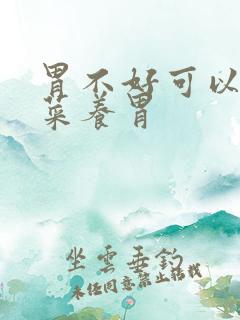 胃不好可以
菜养胃
坐云垂钓
未经同意禁止搭载